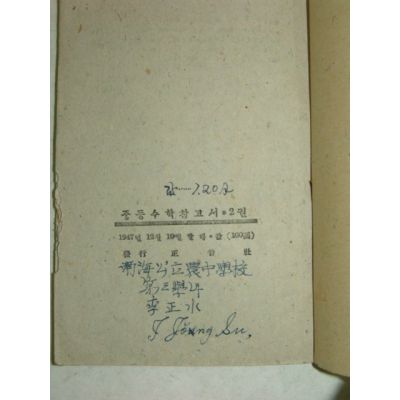 중등수학참고서*2권
1947년 12월 19일 발행*값 (100圓)
發行 正音社
南海公立農中學校
第三學年
李正水
I Joung Su.